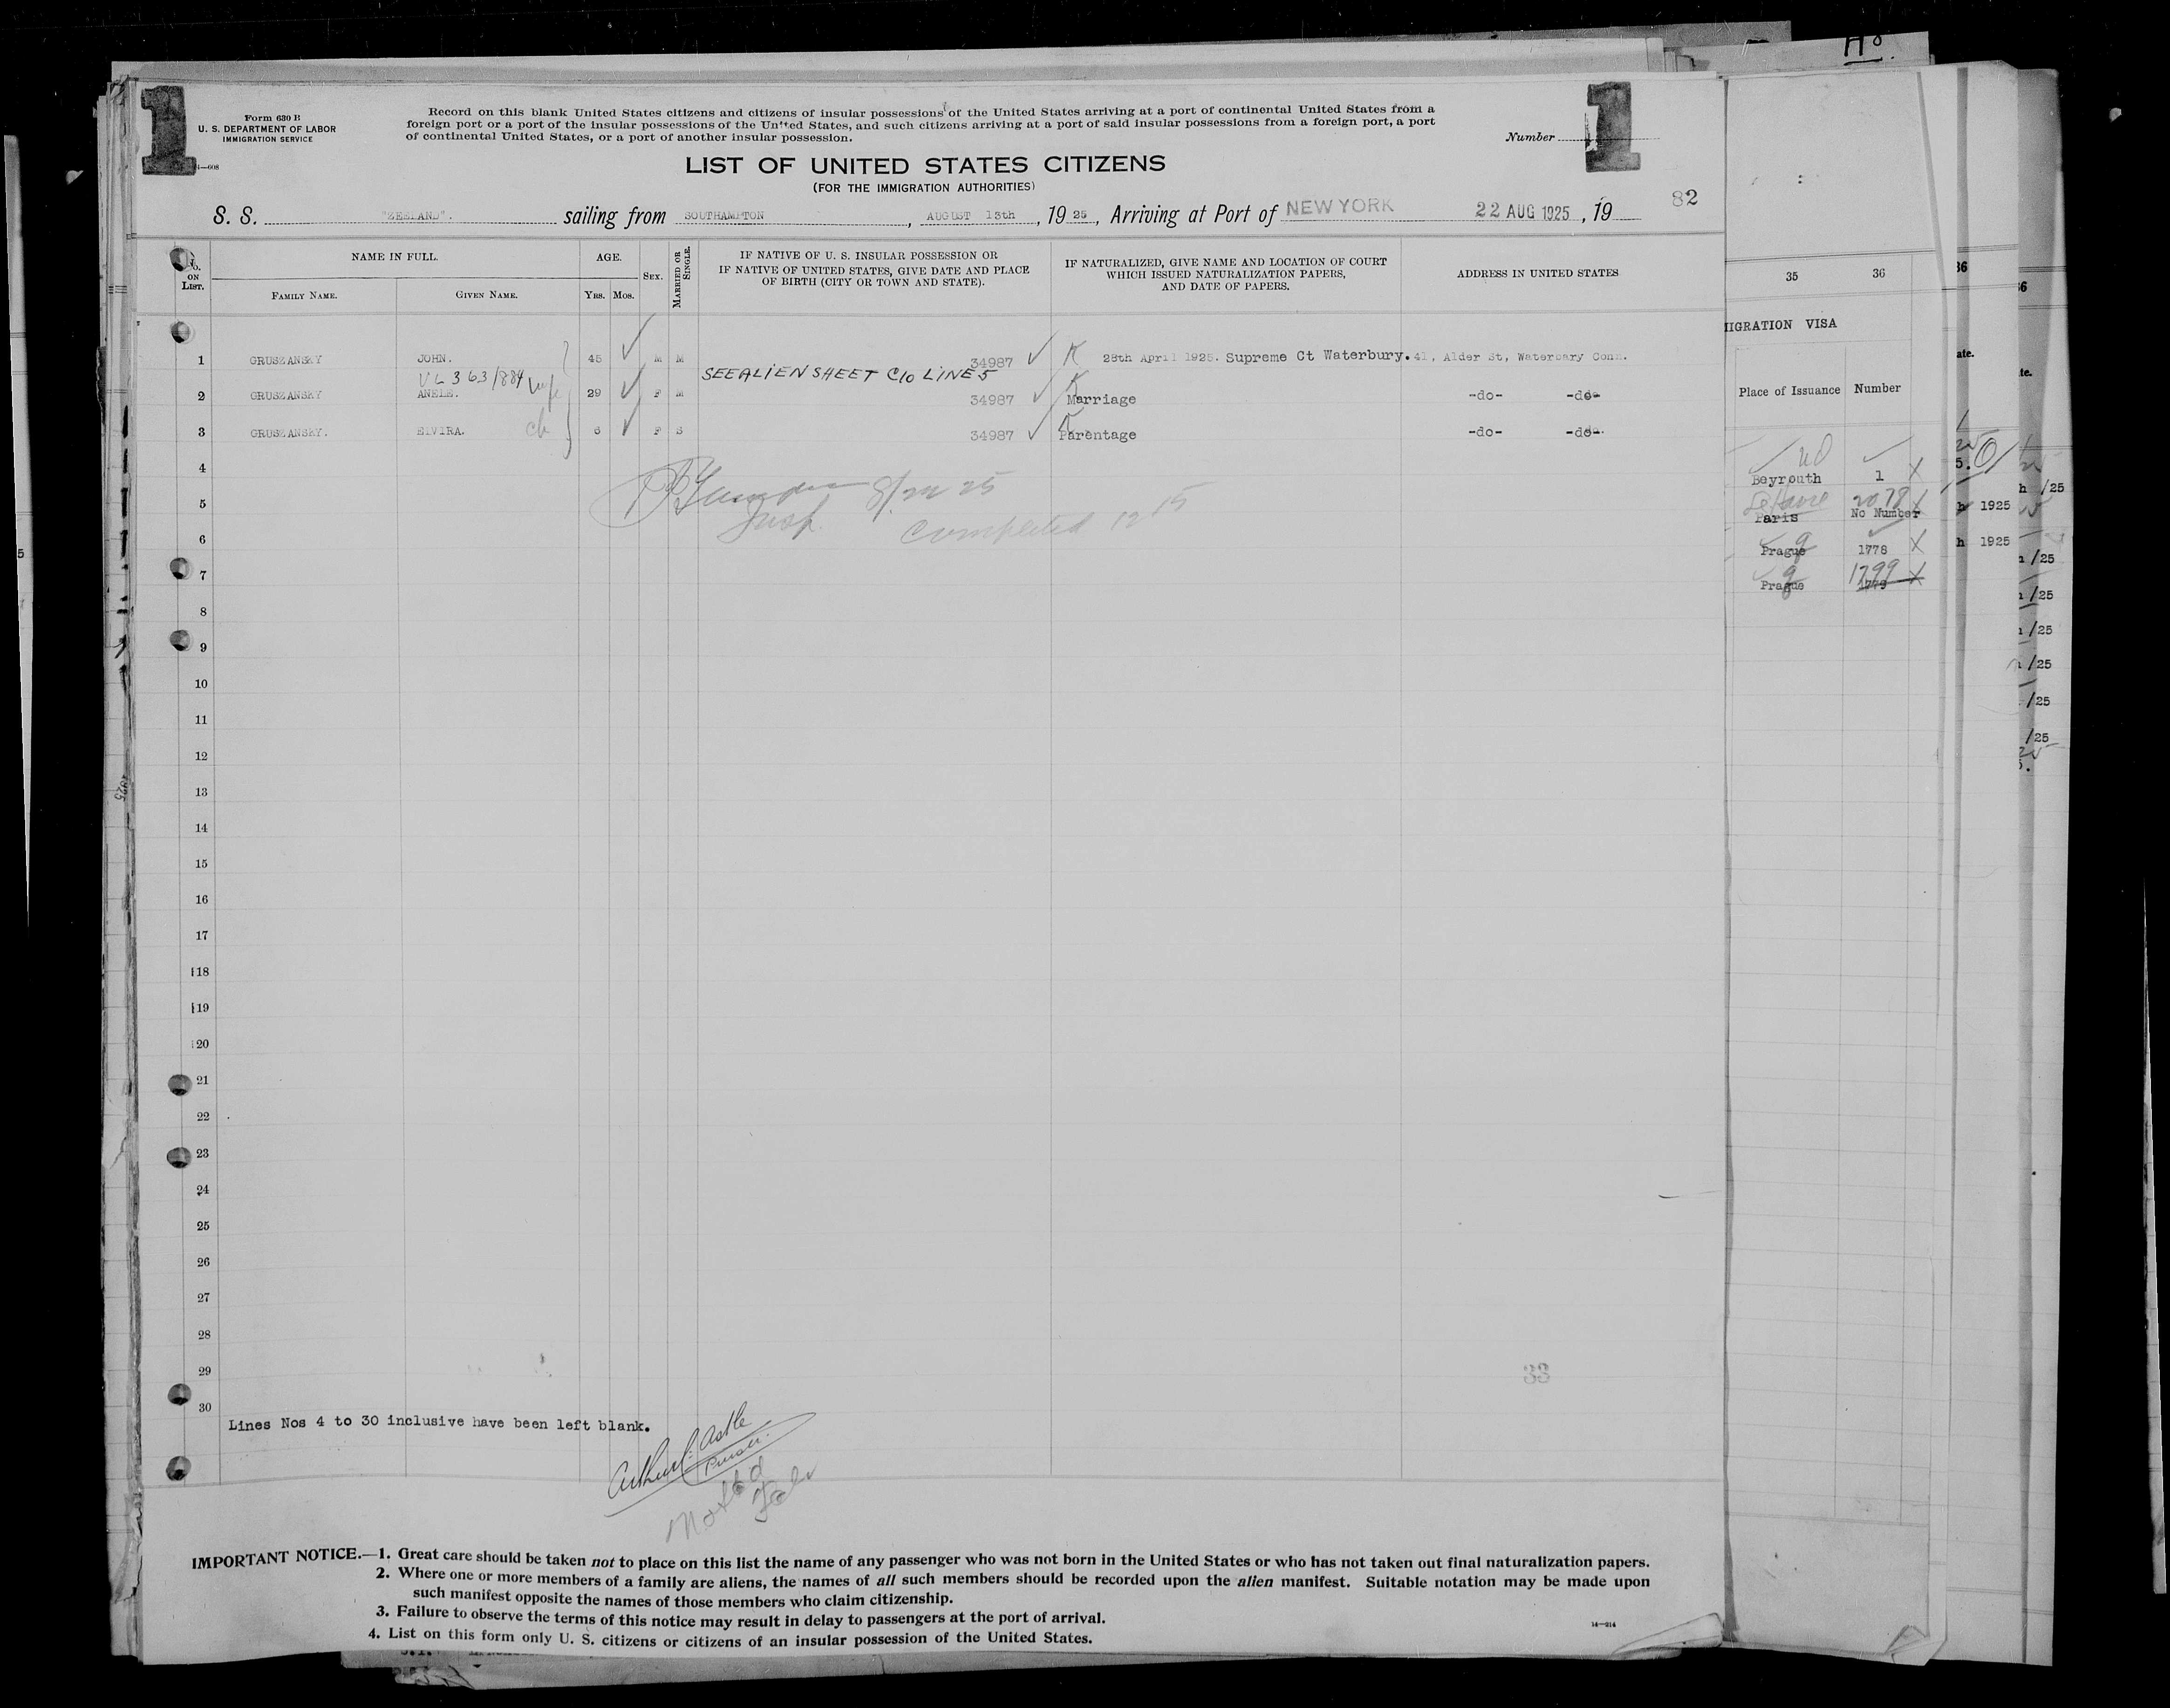 H8.
1
Form 630 B
U. S. DEPARTMENT OF LABOR
IMMIGRATION SERVICE
Record on this blank United States citizens and citizens of insular possessions of the United States arriving at a port of continental United States from a
foreign port or a port of the insular possessions of the United States, and such citizens arriving at a port of said insular possessions from a foreign port, a port
of continental United States, or a port of another insular possession.
Number
1
LIST OF UNITED STATES CITIZENS
(FOR THE IMMIGRATION AUTHORITIES)
82
S. S. "ZEELAND". sailing from SOUTHAMPTON, AUGUST 13th, 1925, Arriving at Port of NEW YORK 22 AUG 1925, 19
No. ON LIST.
NAME IN FULL.
FAMILY NAME. GIVEN NAME.
AGE.
YRS. MOS.
SEX.
MARRIED OR SINGLE.
IF NATIVE OF U. S. INSULAR POSSESSION OR
IF NATIVE OF UNITED STATES, GIVE DATE AND PLACE
OF BIRTH (CITY OR TOWN AND STATE).
IF NATURALIZED, GIVE NAME AND LOCATION OF COURT
WHICH ISSUED NATURALIZATION PAPERS,
AND DATE OF PAPERS.
ADDRESS IN UNITED STATES
1 GRUSZANSKY JOHN. 45 M M 34987 28th April 1925. Supreme Ct Waterbury. 41, Alder St, Waterbary Conn.
VL 363/884 wife SEE ALIEN SHEET C10 LINE 5
2 GRUSZANSKY ANELE. 29 F M 34987 Marriage -do- -do-
3 GRUSZANSKY. ELVIRA. ch 6 F S 34987 Parentage -do- -do-.
4
5
Insp. Completed 12 15
6
7
8
9
10
11
12
13
14
15
16
17
18
19
20
21
22
23
24
25
26
27
28
29
33
30
Lines Nos 4 to 30 inclusive have been left blank.
Purser.
IMPORTANT NOTICE.—1. Great care should be taken not to place on this list the name of any passenger who was not born in the United States or who has not taken out final naturalization papers.
2. Where one or more members of a family are aliens, the names of all such members should be recorded upon the alien manifest. Suitable notation may be made upon
such manifest opposite the names of those members who claim citizenship.
3. Failure to observe the terms of this notice may result in delay to passengers at the port of arrival.
4. List on this form only U. S. citizens or citizens of an insular possession of the United States.
14—214
35 36
IGRATION VISA
Place of Issuance Number
Beyrouth 1
Le Havre 2078
Paris No Number
Prague 1778
Prague 1799
1779
36
ate.
h 1925
h 1925
/25
/25
/25
/25
/25
/25
/25